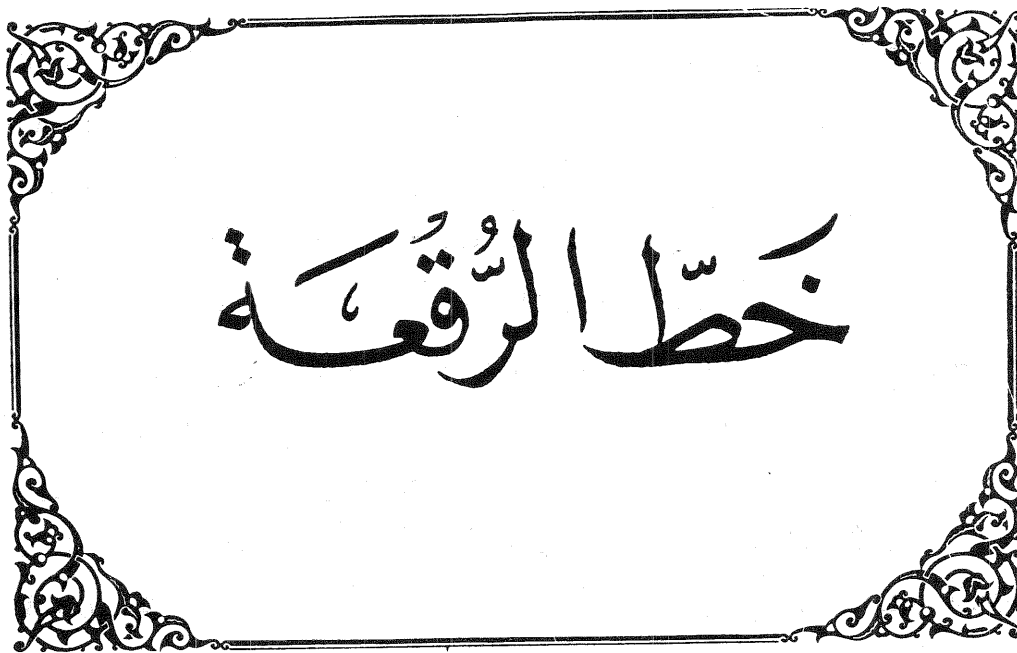 خَطّ الرُّقُعَة